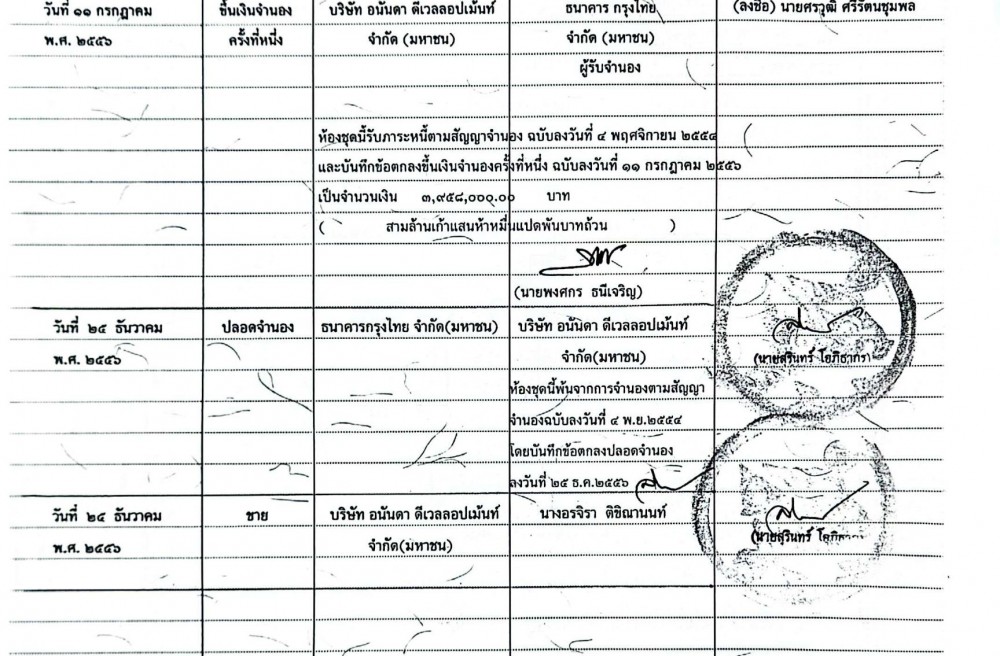 วันที่ ๑๑ กรกฎาคม
พ.ศ. ๒๕๕๖
ขึ้นเงินจำนอง
ครั้งที่หนึ่ง
บริษัท อนันดา ดีเวลลอปเม้นท์
จำกัด (มหาชน)
ธนาคาร กรุงไทย
จำกัด (มหาชน)
ผู้รับจำนอง
(ลงชื่อ) นายศรวุฒิ ศรีรัตนชุมพล
ห้องชุดนี้รับภาระหนี้ตามสัญญาจำนอง ฉบับลงวันที่ ๔ พฤศจิกายน ๒๕๕๔
และบันทึกข้อตกลงขึ้นเงินจำนองครั้งที่หนึ่ง ฉบับลงวันที่ ๑๑ กรกฎาคม ๒๕๕๖
เป็นจำนวนเงิน ๓,๙๕๘,๐๐๐.๐๐ บาท
( สามล้านเก้าแสนห้าหมื่นแปดพันบาทถ้วน )
(นายพงศกร ธนีเจริญ)
วันที่ ๒๕ ธันวาคม
พ.ศ. ๒๕๕๖
ปลอดจำนอง
ธนาคารกรุงไทย จำกัด(มหาชน)
บริษัท อนันดา ดีเวลลอปเม้นท์
จำกัด(มหาชน)
ห้องชุดนี้พ้นจากการจำนองตามสัญญา
จำนองฉบับลงวันที่ ๔ พ.ย.๒๕๕๔
โดยบันทึกข้อตกลงปลอดจำนอง
ลงวันที่ ๒๕ ธ.ค.๒๕๕๖
(นายสุรินทร์
วันที่ ๒๕ ธันวาคม
พ.ศ. ๒๕๕๖
ขาย
บริษัท อนันดา ดีเวลลอปเม้นท์
จำกัด(มหาชน)
นางอรจิรา ดิชิณานนท์
(นายสุรินทร์